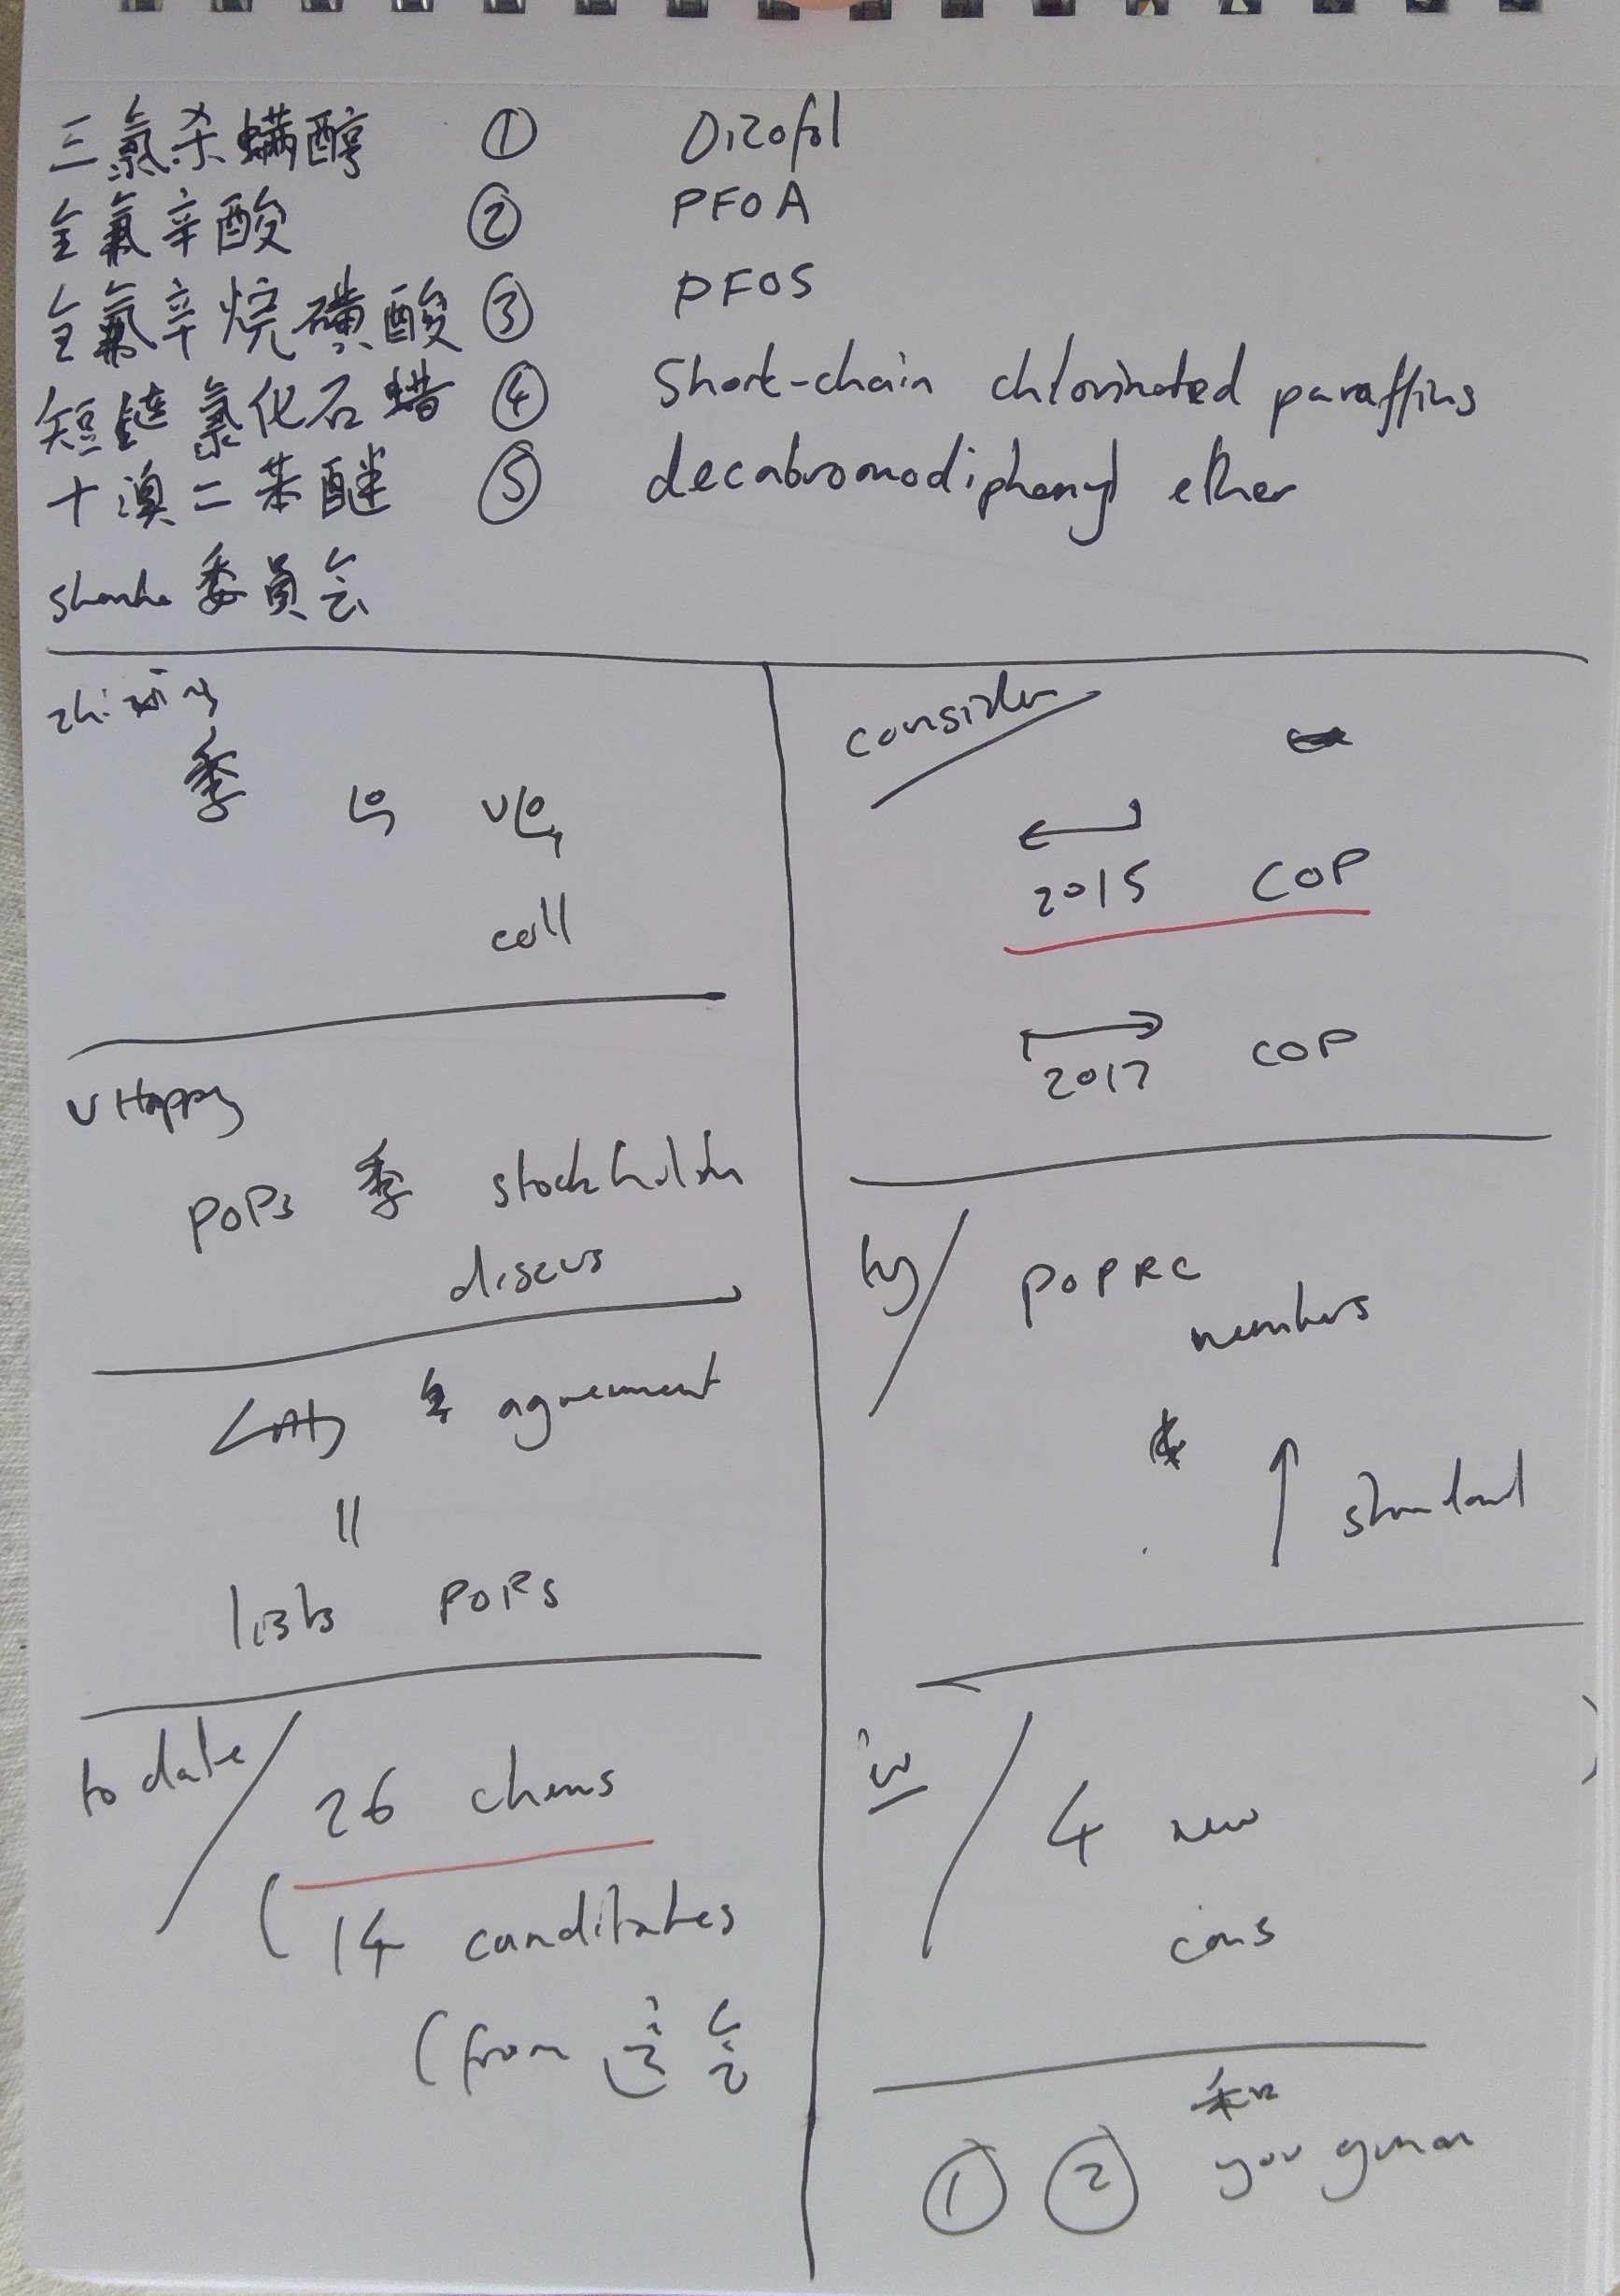 三氯杀螨醇 ① Dicofol
全氟辛酸 ② PFOA
全氟辛烷磺酸 ③ PFOS
短链氯化石蜡 ④ Short-chain chlorinated paraffins
十溴二苯醚 ⑤ decabromodiphenyl ether
委員会
季
call
v Happy
POPs 季 stockholm
discus
agreement
lists POPs
to date
26 chems
14 canditates
(from
consider
2015 COP
2017 COP
POPRC
members
standard
in
4 new
cons
① ② 和
you guan